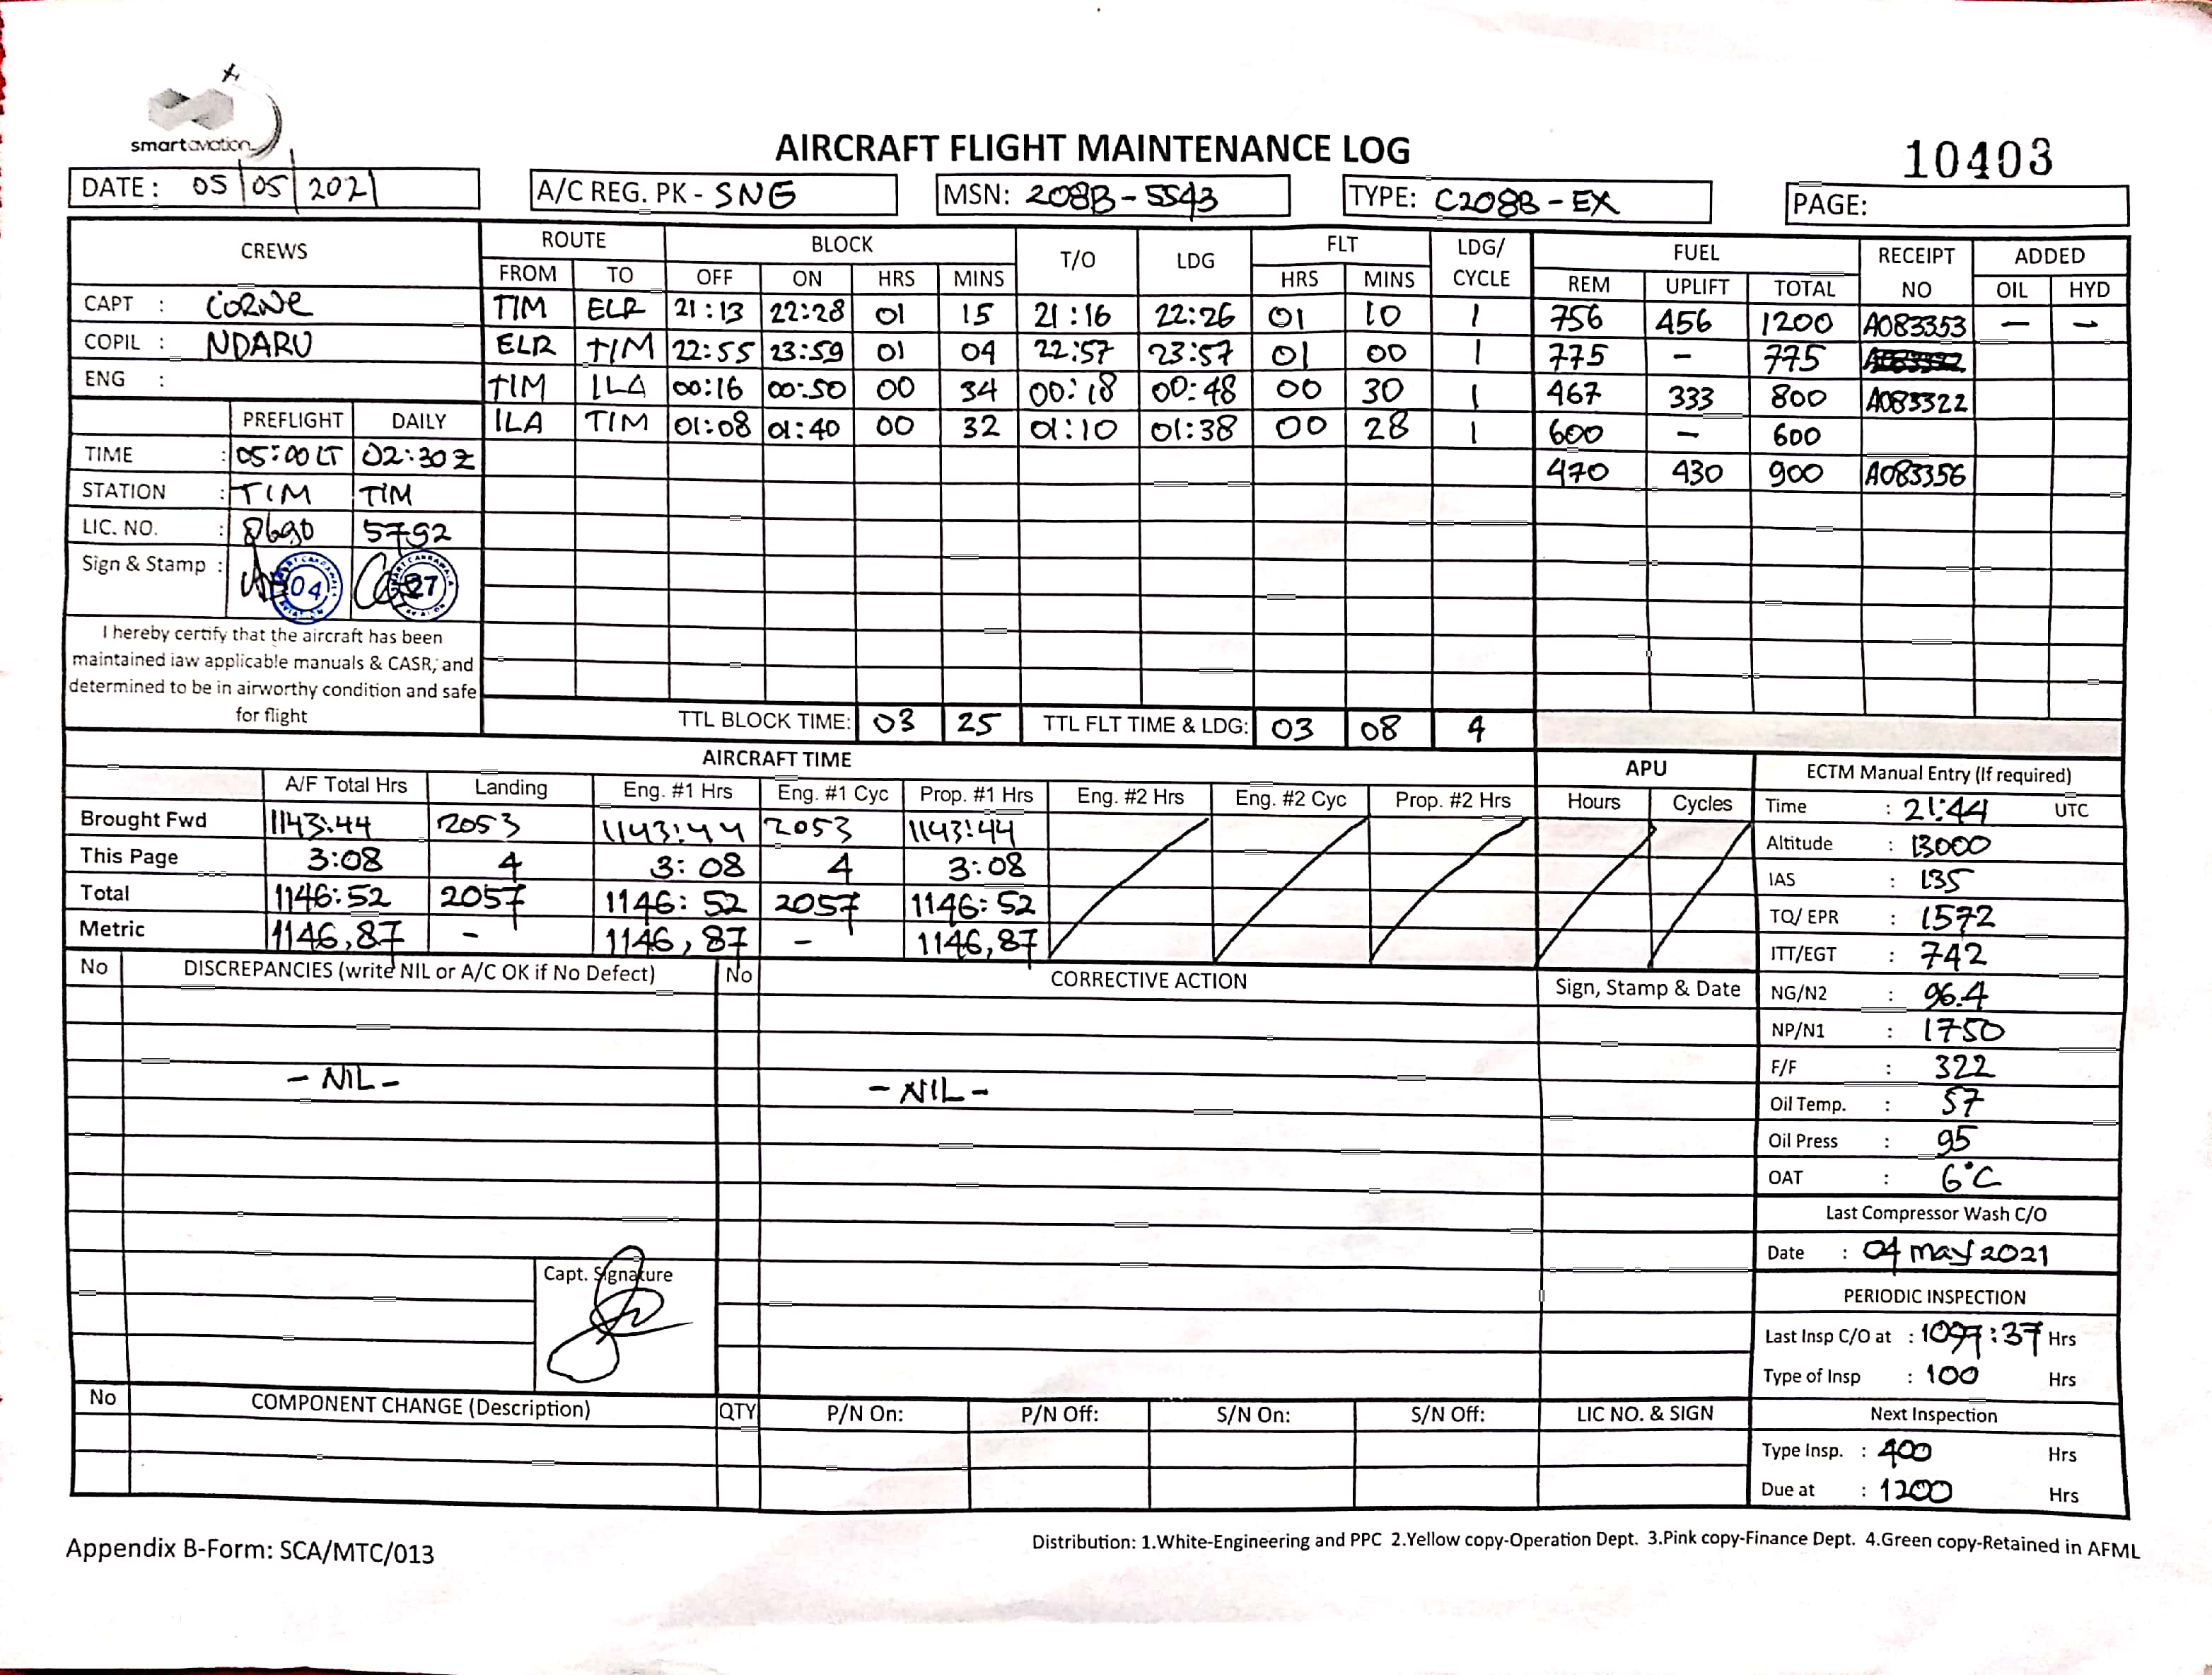 smartaviation
AIRCRAFT FLIGHT MAINTENANCE LOG
10403
DATE: 05/05/2021 A/C REG. PK - SNG MSN: 208B-5543 TYPE: C208B-EX PAGE:
CREWS ROUTE BLOCK T/O LDG FLT LDG/CYCLE FUEL RECEIPT NO ADDED
FROM TO OFF ON HRS MINS HRS MINS REM UPLIFT TOTAL OIL HYD
CAPT : CORNE TIM ELR 21:13 22:28 01 15 21:16 22:26 01 10 1 756 456 1200 A083353 – –
COPIL : NDARU ELR TIM 22:55 23:59 01 04 22:57 23:57 01 00 1 775 – 775
ENG : TIM ILA 00:16 00:50 00 34 00:18 00:48 00 30 1 467 333 800 A083322
PREFLIGHT DAILY ILA TIM 01:08 01:40 00 32 01:10 01:38 00 28 1 600 – 600
TIME : 05:00 LT 02:30 Z 470 430 900 A083356
STATION : TIM TIM
LIC. NO. : 8690 5792
Sign & Stamp : 04 27
I hereby certify that the aircraft has been
maintained iaw applicable manuals & CASR, and
determined to be in airworthy condition and safe
for flight
TTL BLOCK TIME: 03 25 TTL FLT TIME & LDG: 03 08 4
AIRCRAFT TIME APU ECTM Manual Entry (If required)
A/F Total Hrs Landing Eng. #1 Hrs Eng. #1 Cyc Prop. #1 Hrs Eng. #2 Hrs Eng. #2 Cyc Prop. #2 Hrs Hours Cycles Time : 21:44 UTC
Brought Fwd 1143:44 2053 1143:44 2053 1143:44 Altitude : 13000
This Page 3:08 4 3:08 4 3:08 IAS : 135
Total 1146:52 2057 1146:52 2057 1146:52 TQ/ EPR : 1572
Metric 1146,87 - 1146,87 - 1146,87 ITT/EGT : 742
No DISCREPANCIES (write NIL or A/C OK if No Defect) No CORRECTIVE ACTION Sign, Stamp & Date NG/N2 : 96.4
NP/N1 : 1750
- NIL - - NIL - F/F : 322
Oil Temp. : 57
Oil Press : 95
OAT : 6°C
Last Compressor Wash C/O
Date : 04 may 2021
Capt. Signature
PERIODIC INSPECTION
Last Insp C/O at : 1097:37 Hrs
Type of Insp : 100 Hrs
No COMPONENT CHANGE (Description) QTY P/N On: P/N Off: S/N On: S/N Off: LIC NO. & SIGN Next Inspection
Type Insp. : 400 Hrs
Due at : 1200 Hrs
Appendix B-Form: SCA/MTC/013
Distribution: 1.White-Engineering and PPC 2.Yellow copy-Operation Dept. 3.Pink copy-Finance Dept. 4.Green copy-Retained in AFML